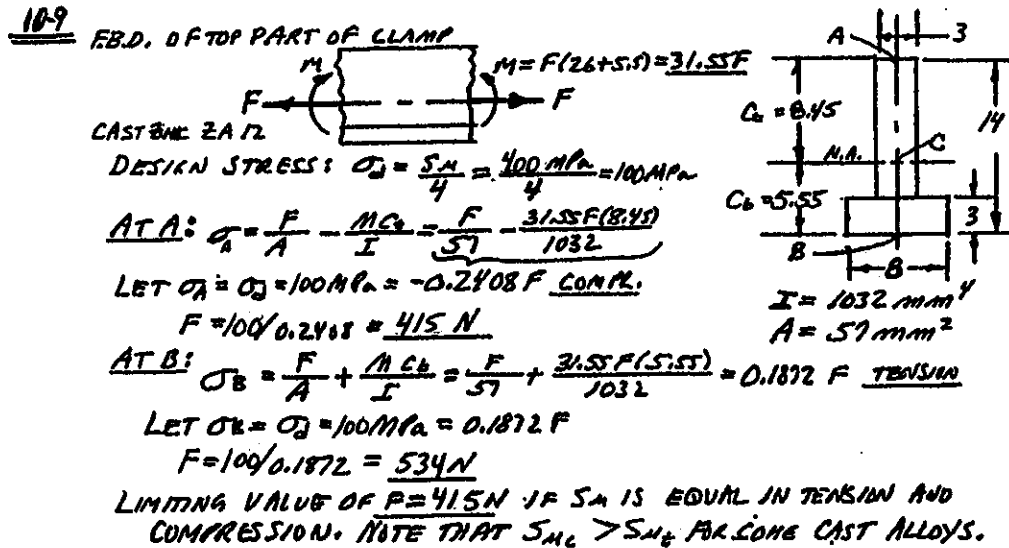 10-9 F.B.D. OF TOP PART OF CLAMP
M M = F(26+5.5) = 31.55F
F F
CAST ZINC ZA 12
DESIGN STRESS: σd = Su/4 = 400 MPa/4 = 100 MPa
AT A: σA = F/A - MCt/I = F/57 - 31.55F(8.45)/1032
LET σA = σd = 100 MPa = -0.2408 F COMPR.
F = 100/0.2408 = 415 N
AT B: σB = F/A + MCb/I = F/57 + 31.55F(5.55)/1032 = 0.1872 F TENSION
LET σB = σd = 100 MPa = 0.1872 F
F = 100/0.1872 = 534 N
LIMITING VALUE OF F = 415 N IF Su IS EQUAL IN TENSION AND
COMPRESSION. NOTE THAT Suc > Sut FOR SOME CAST ALLOYS.
A 3
Ct = 8.45 14
N.A. C
Cb = 5.55 3
B
8
I = 1032 mm⁴
A = 57 mm²